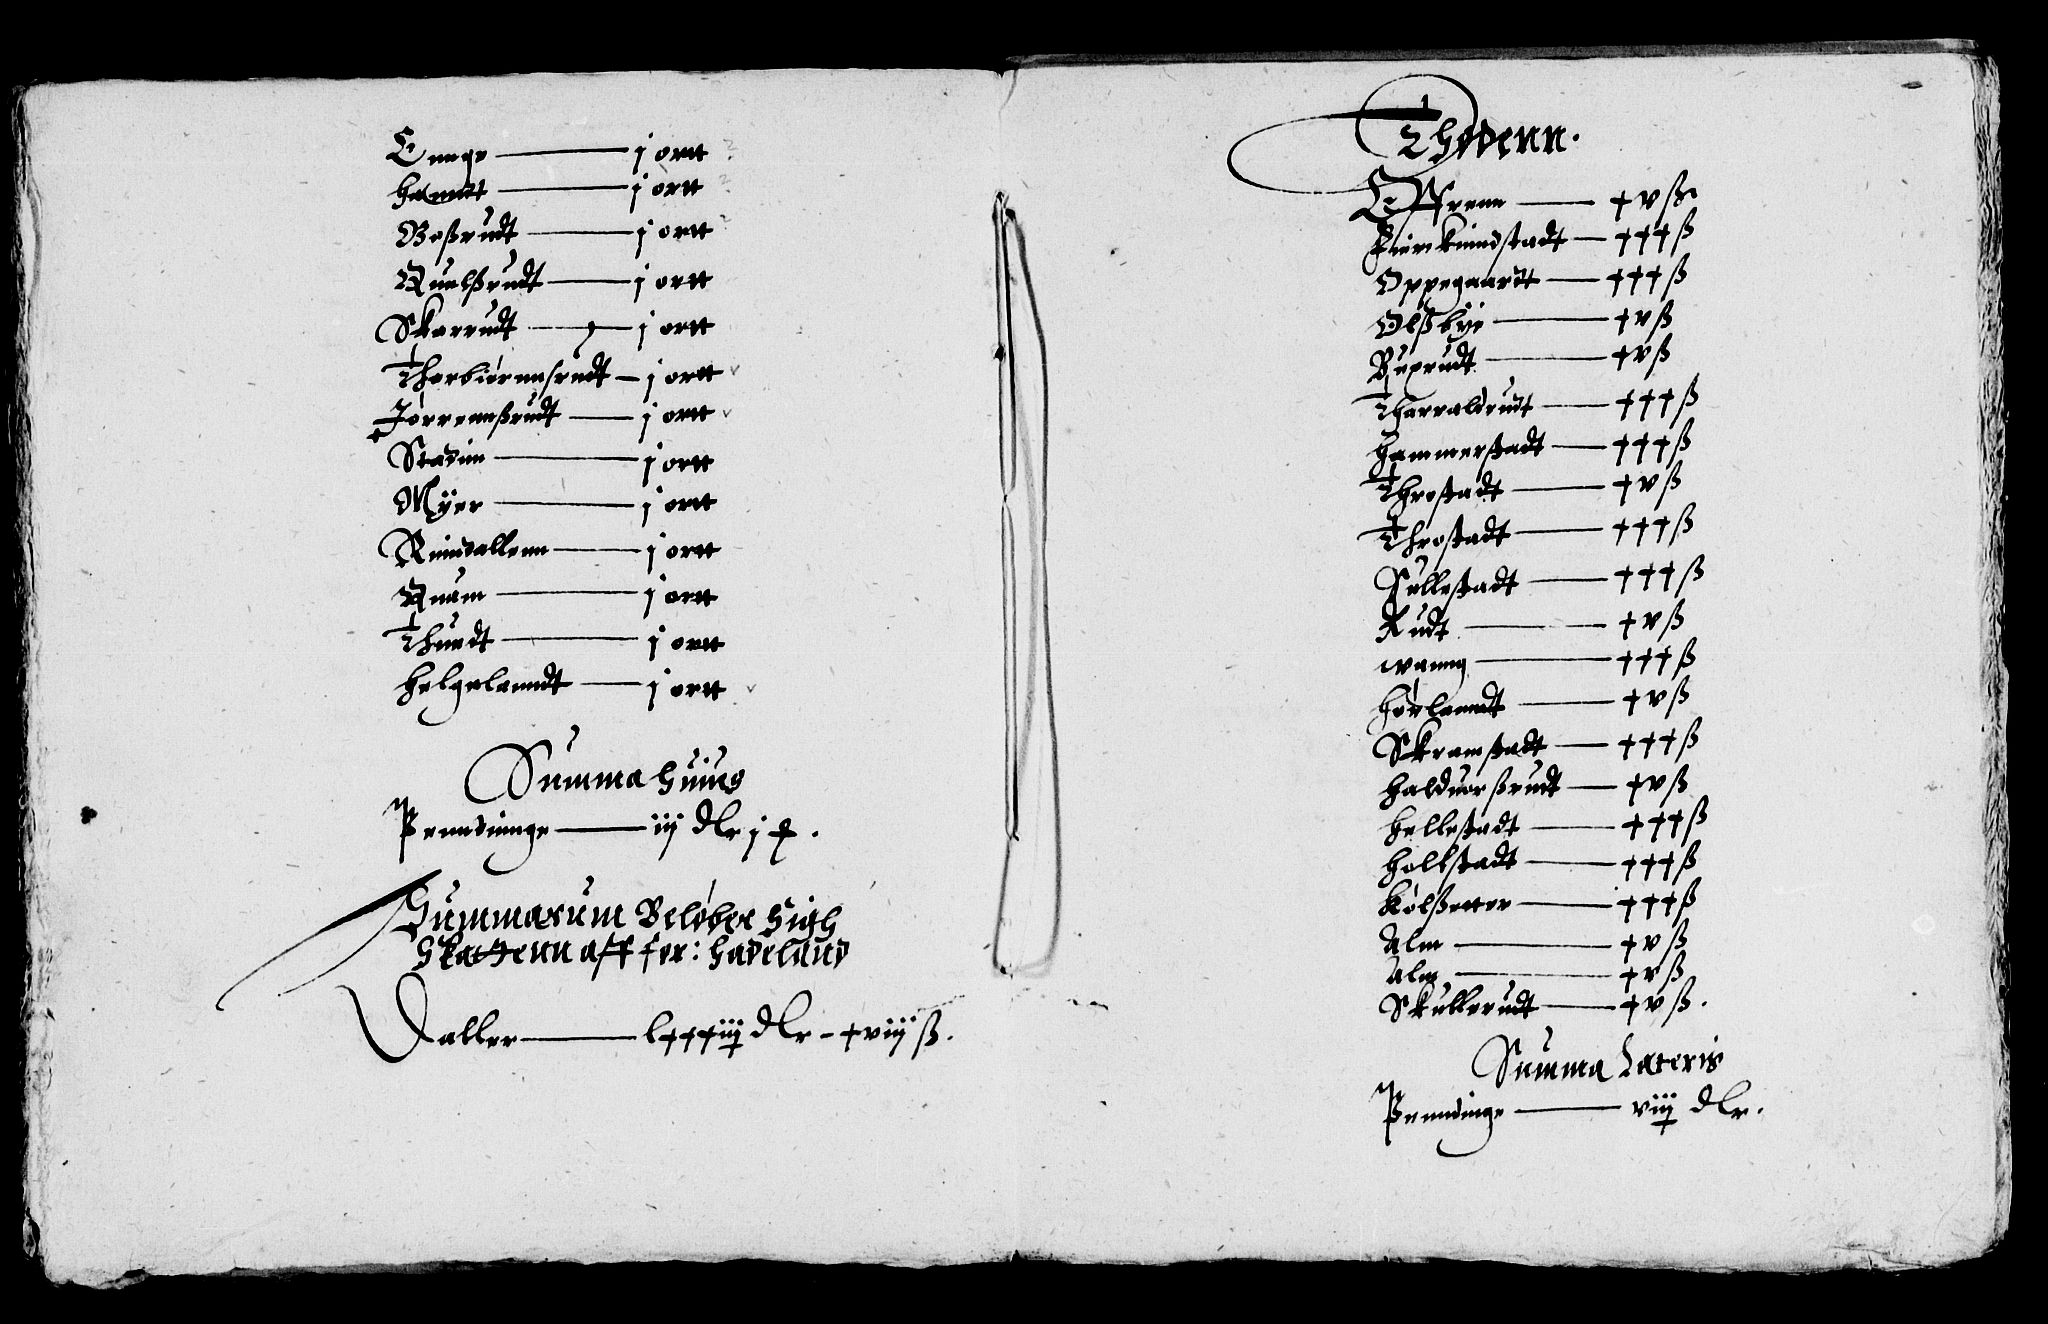 Ennge — j ortt
Hamdt — j ortt
Boßrudt — j ortt
Quelßrudt — j ortt
Skarrudt — j ortt
Thorbiørnnsrudt — j ortt
Jørrennßrudt — j ortt
Stadim — j ortt
Myer — j ortt
Rinndallenn — j ortt
Quam — j ortt
Thundt — j ortt
Helgelanndt — j ortt
Summa huius
Penndinnge — iij dlr j ort.
Summarum Beløber Sigh
Skattenn aff for: Hadeland
Daller — lxxxiiij dlr – xviij ß.
Thodenn.
Offrenn — xv ß
kinndstadt — xxx ß
Oppegaardt — xxx ß
Olßbye — xv ß
xv ß
Tharraldrudt — xxx ß
Hammerstadt — xxx ß
Throstadt — xv ß
Throstadt — xxx ß
Sullestadt — xxx ß
Rudt — xv ß
wanng — xxx ß
Hørlanndt — xv ß
Skramstadt — xxx ß
Halduorßrudt — xv ß
Hellestadt — xxx ß
Hollstadt — xxx ß
Kølßetter — xxx ß
Alm — xv ß
Alm — xv ß
Skullerudt — xv ß.
Summa Lateris
Penndinge — viij dlr.